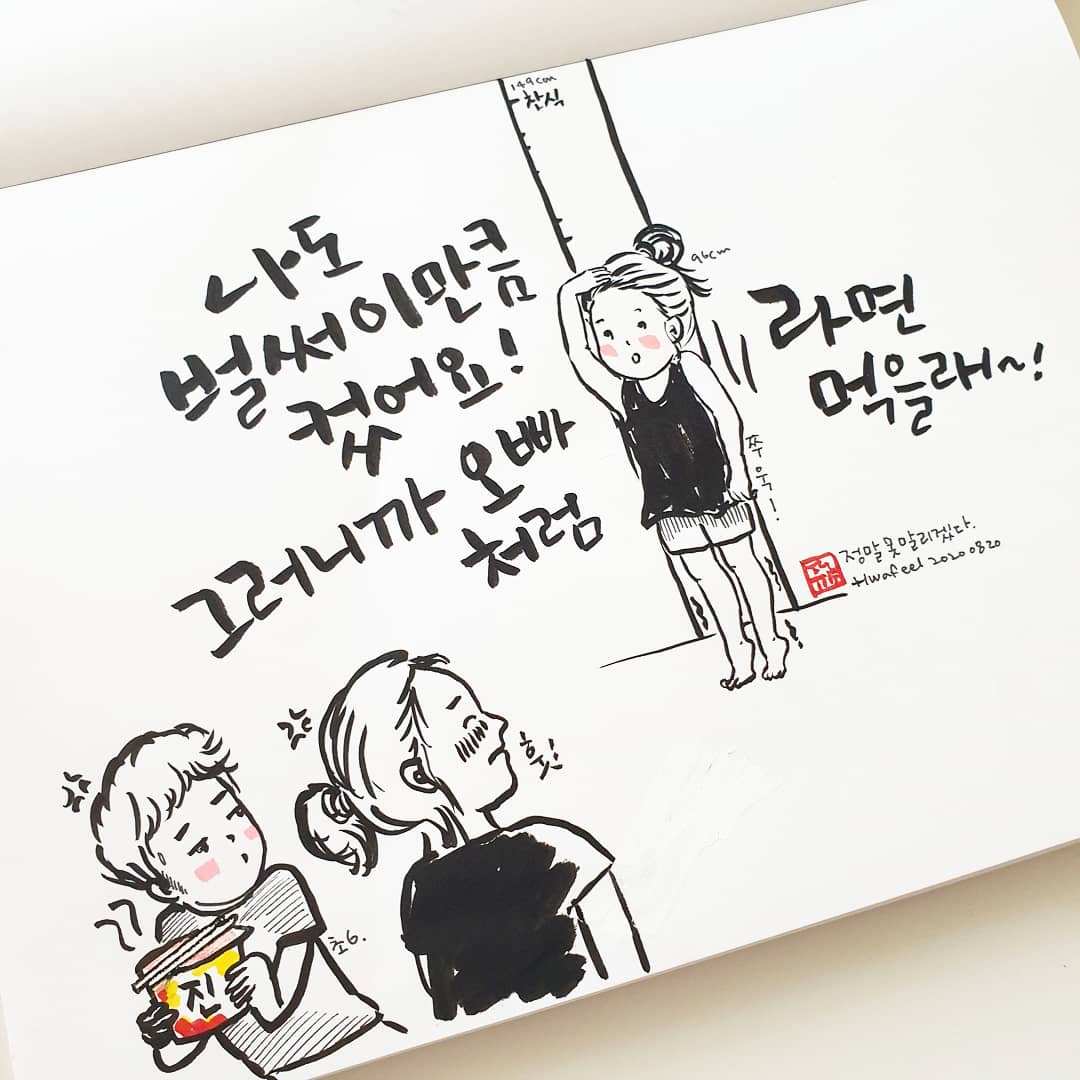 149cm
찬식
나도
벌써 이만큼
컸어요!
그러니까 오빠
처럼
96cm
라면
먹을래~!
쭈욱!
정말 못 말리겠다.
Hwafeel 20200820
훗!
초6.
진